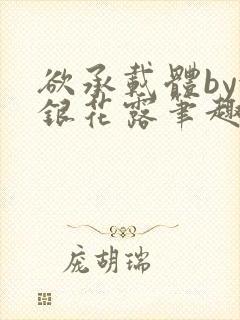 欲承载體by
銀花露筆趣
庞胡瑞